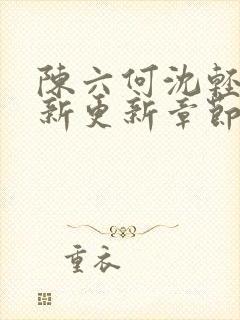 陳六何沈輕
新更新章節
重衣